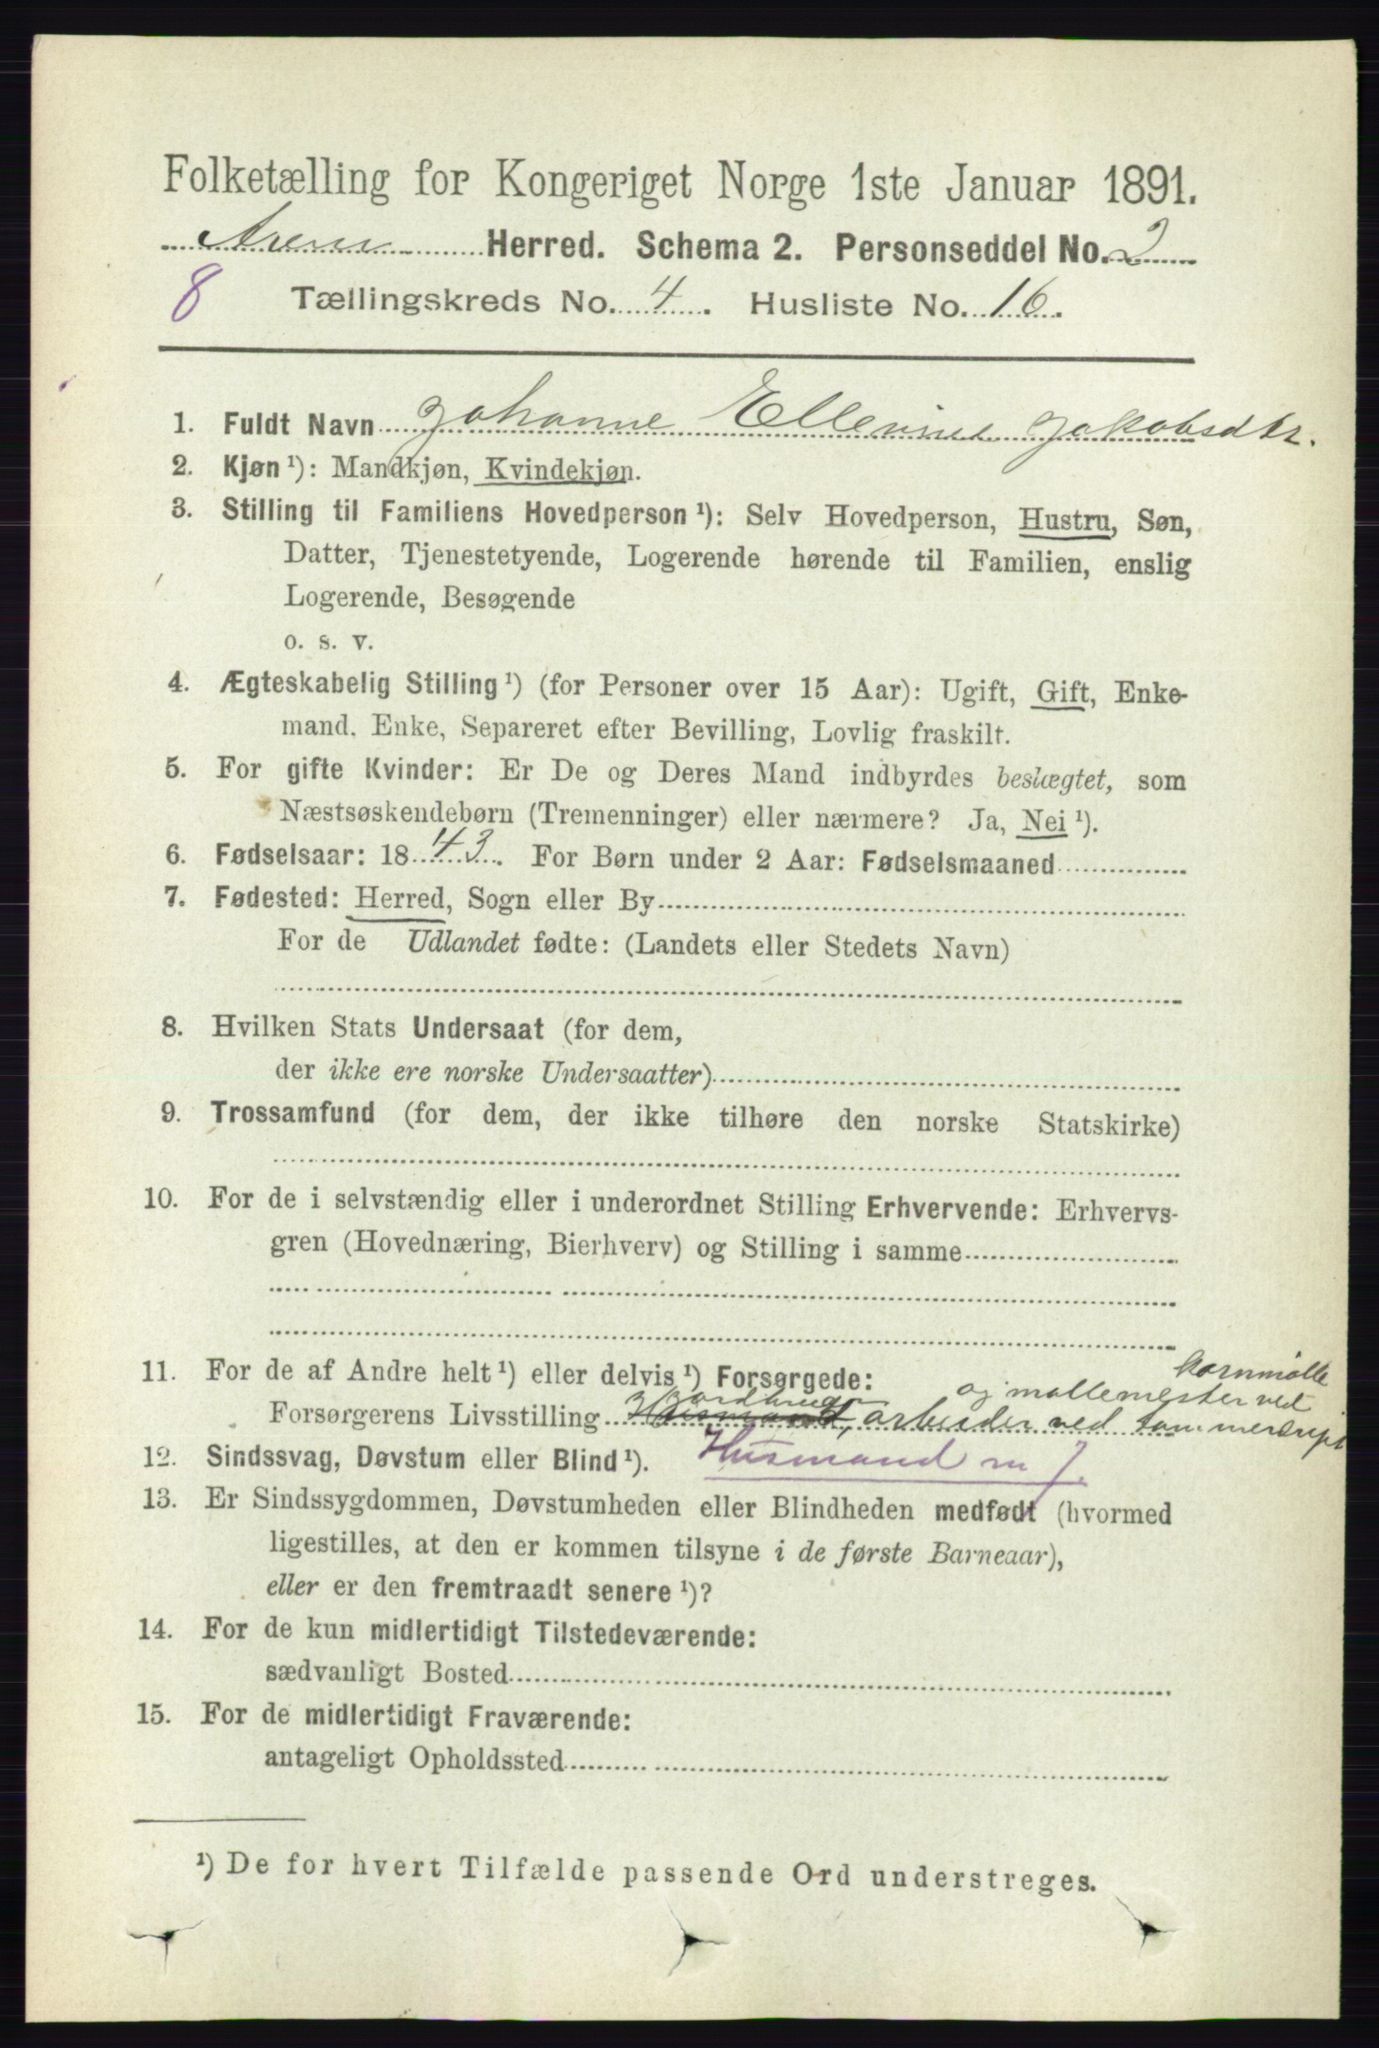 Folketælling for Kongeriget Norge 1ste Januar 1891.
Herred. Schema 2. Personseddel No. 2
8 Tællingskreds No. 4. Husliste No. 16.
1. Fuldt Navn Johanne Ellevine Jakobsdtr.
2. Kjøn ¹): Mandkjøn, Kvindekjøn.
3. Stilling til Familiens Hovedperson ¹): Selv Hovedperson, Hustru, Søn,
Datter, Tjenestetyende, Logerende hørende til Familien, enslig
Logerende, Besøgende
o. s. v.
4. Ægteskabelig Stilling ¹) (for Personer over 15 Aar): Ugift, Gift, Enke-
mand, Enke, Separeret efter Bevilling, Lovlig fraskilt.
5. For gifte Kvinder: Er De og Deres Mand indbyrdes beslægtet, som
Næstsøskendebørn (Tremenninger) eller nærmere? Ja, Nei ¹).
6. Fødselsaar: 1843. For Børn under 2 Aar: Fødselsmaaned
7. Fødested: Herred, Sogn eller By
For de Udlandet fødte: (Landets eller Stedets Navn)
8. Hvilken Stats Undersaat (for dem,
der ikke ere norske Undersaatter)
9. Trossamfund (for dem, der ikke tilhøre den norske Statskirke)
10. For de i selvstændig eller i underordnet Stilling Erhvervende: Erhvervs-
gren (Hovednæring, Bierhverv) og Stilling i samme
kornmølle
11. For de af Andre helt ¹) eller delvis ¹) Forsørgede:
Jordbruger og møllemester ved
Forsørgerens Livsstilling Husmand, arbeider ved tømmerdrift
12. Sindssvag, Døvstum eller Blind ¹). Husmand m J.
13. Er Sindssygdommen, Døvstumheden eller Blindheden medfødt (hvormed
ligestilles, at den er kommen tilsyne i de første Barneaar),
eller er den fremtraadt senere ¹)?
14. For de kun midlertidigt Tilstedeværende:
sædvanligt Bosted
15. For de midlertidigt Fraværende:
antageligt Opholdssted
¹) De for hvert Tilfælde passende Ord understreges.